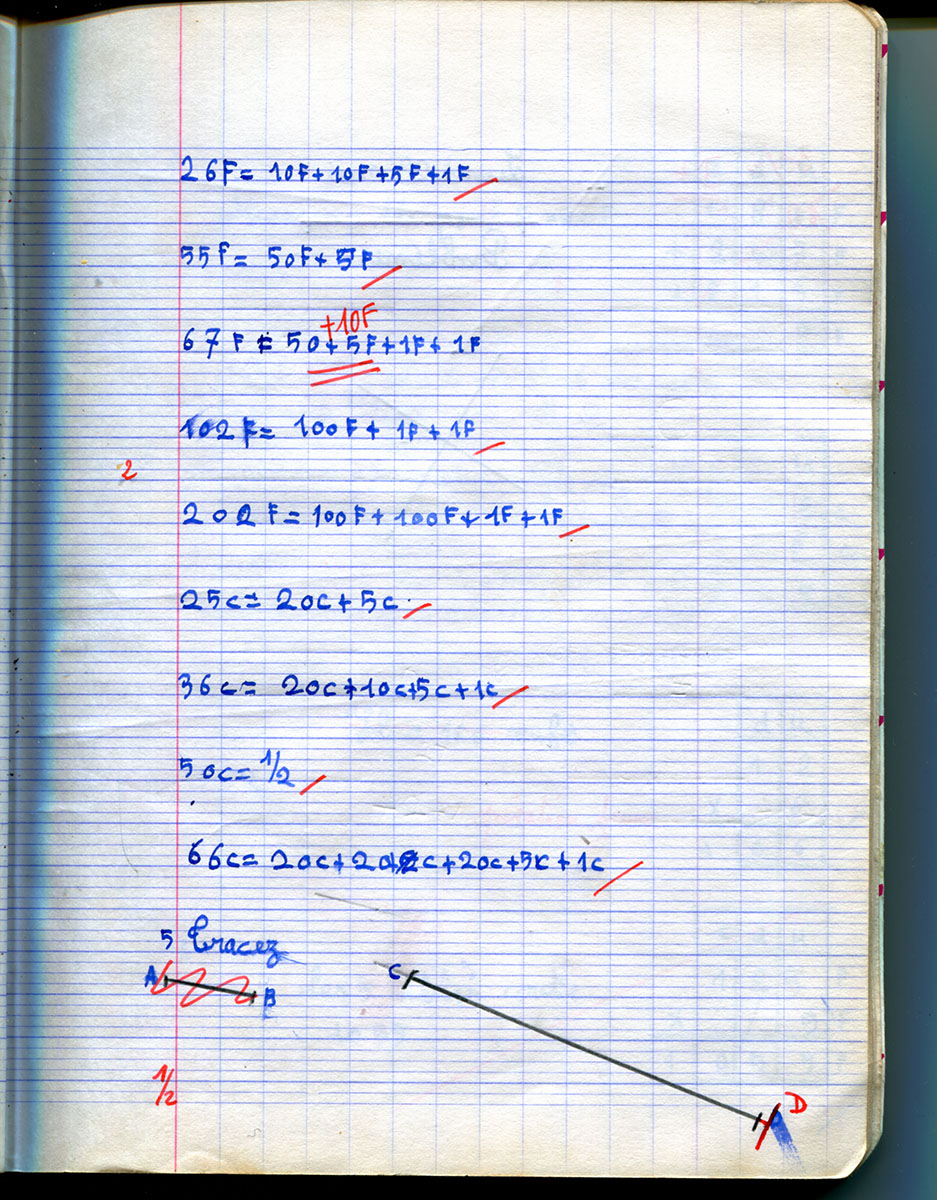 26F= 10F+10F+5F+1F
55F= 50F+5F
+10F
67F = 50+5F+1F+1F
102F= 100F+ 1F+1F
2
202F=100F+100F+1F+1F
25c= 20c+5c
36c= 20c+10c+5c+1c
50c= 1/2
66c= 20c+20c+20c+5c+1c
5 Tracez
A B C
1/2
D